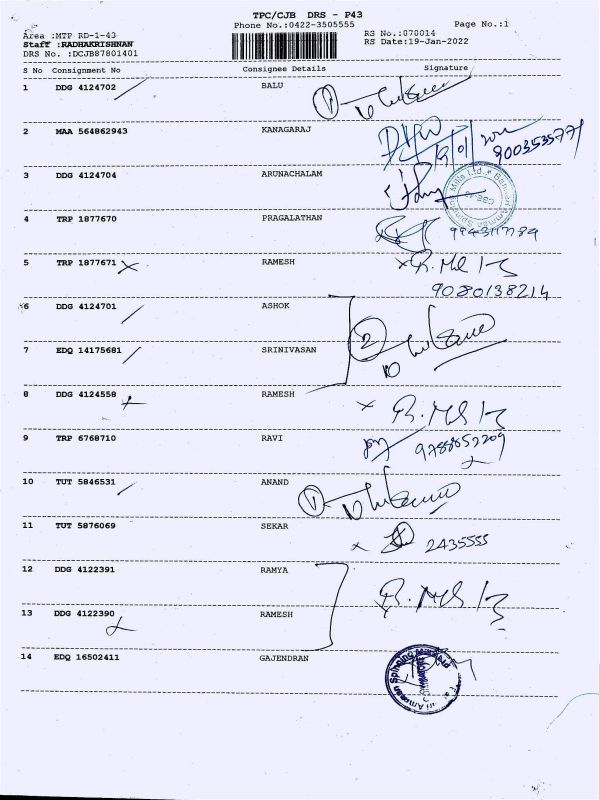 TPC/CJB DRS - P43
Phone No.:0422-3505555 Page No.:1
Area :MTP RD-1-43 RS No.:070014
Staff :RADHAKRISHNAN RS Date:19-Jan-2022
DRS No. :DCJB87801401
S No Consignment No Consignee Details Signature
1 DDG 4124702 BALU
2 MAA 564862943 KANAGARAJ
9003535771
3 DDG 4124704 ARUNACHALAM
4 TRP 1877670 PRAGALATHAN
5 TRP 1877671 RAMESH
9080138214
6 DDG 4124701 ASHOK
2
7 EDQ 14175681 SRINIVASAN
8 DDG 4124558 RAMESH
9 TRP 6768710 RAVI 9788852209
10 TUT 5846531 ANAND
11 TUT 5876069 SEKAR 2435555
12 DDG 4122391 RAMYA
13 DDG 4122390 RAMESH
14 EDQ 16502411 GAJENDRAN